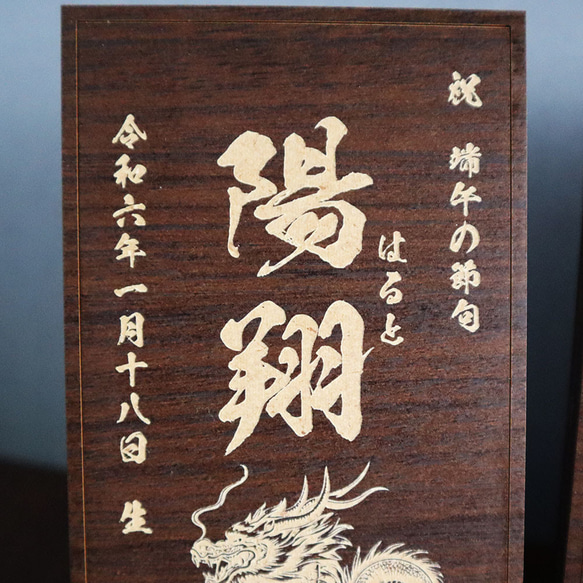 祝 端午の節句
陽翔
はると
令和六年一月十八日 生